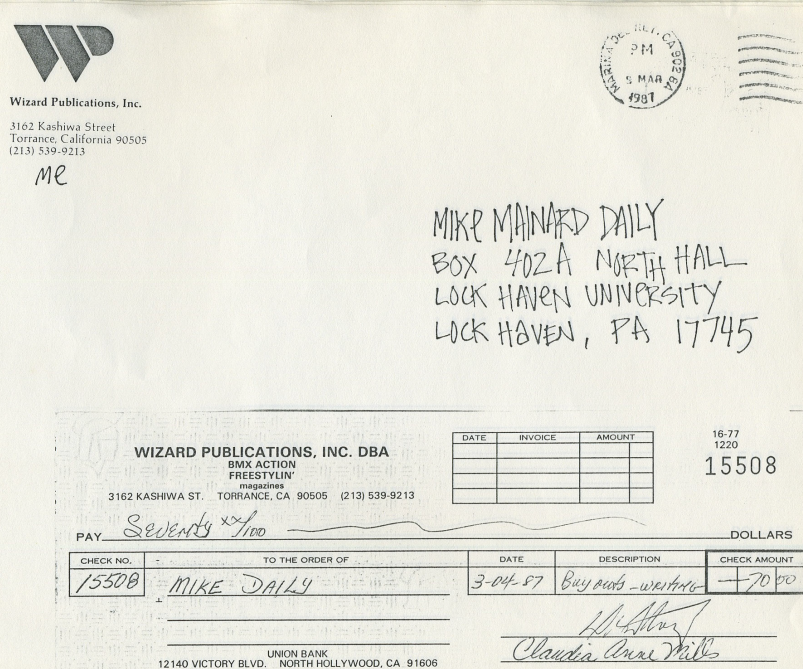 WP
Wizard Publications, Inc.
3162 Kashiwa Street
Torrance, California 90505
(213) 539-9213
Me
MARINA DEL REY, CA 902
PM
MAR
1987
MIKE MAINARD DAILY
BOX 402A NORTH HALL
LOCK HAVEN UNIVERSITY
LOCK HAVEN, PA 17745
WIZARD PUBLICATIONS, INC. DBA
BMX ACTION
FREESTYLIN'
magazines
3162 KASHIWA ST. TORRANCE, CA 90505 (213) 539-9213
DATE INVOICE AMOUNT
16-77
1220
15508
PAY Seventy xx/100 DOLLARS
CHECK NO. TO THE ORDER OF DATE DESCRIPTION CHECK AMOUNT
15508 MIKE DAILY 3-04-87 Buy outs - writing —70 00
Claudia Anne Mills
UNION BANK
12140 VICTORY BLVD. NORTH HOLLYWOOD, CA 91606